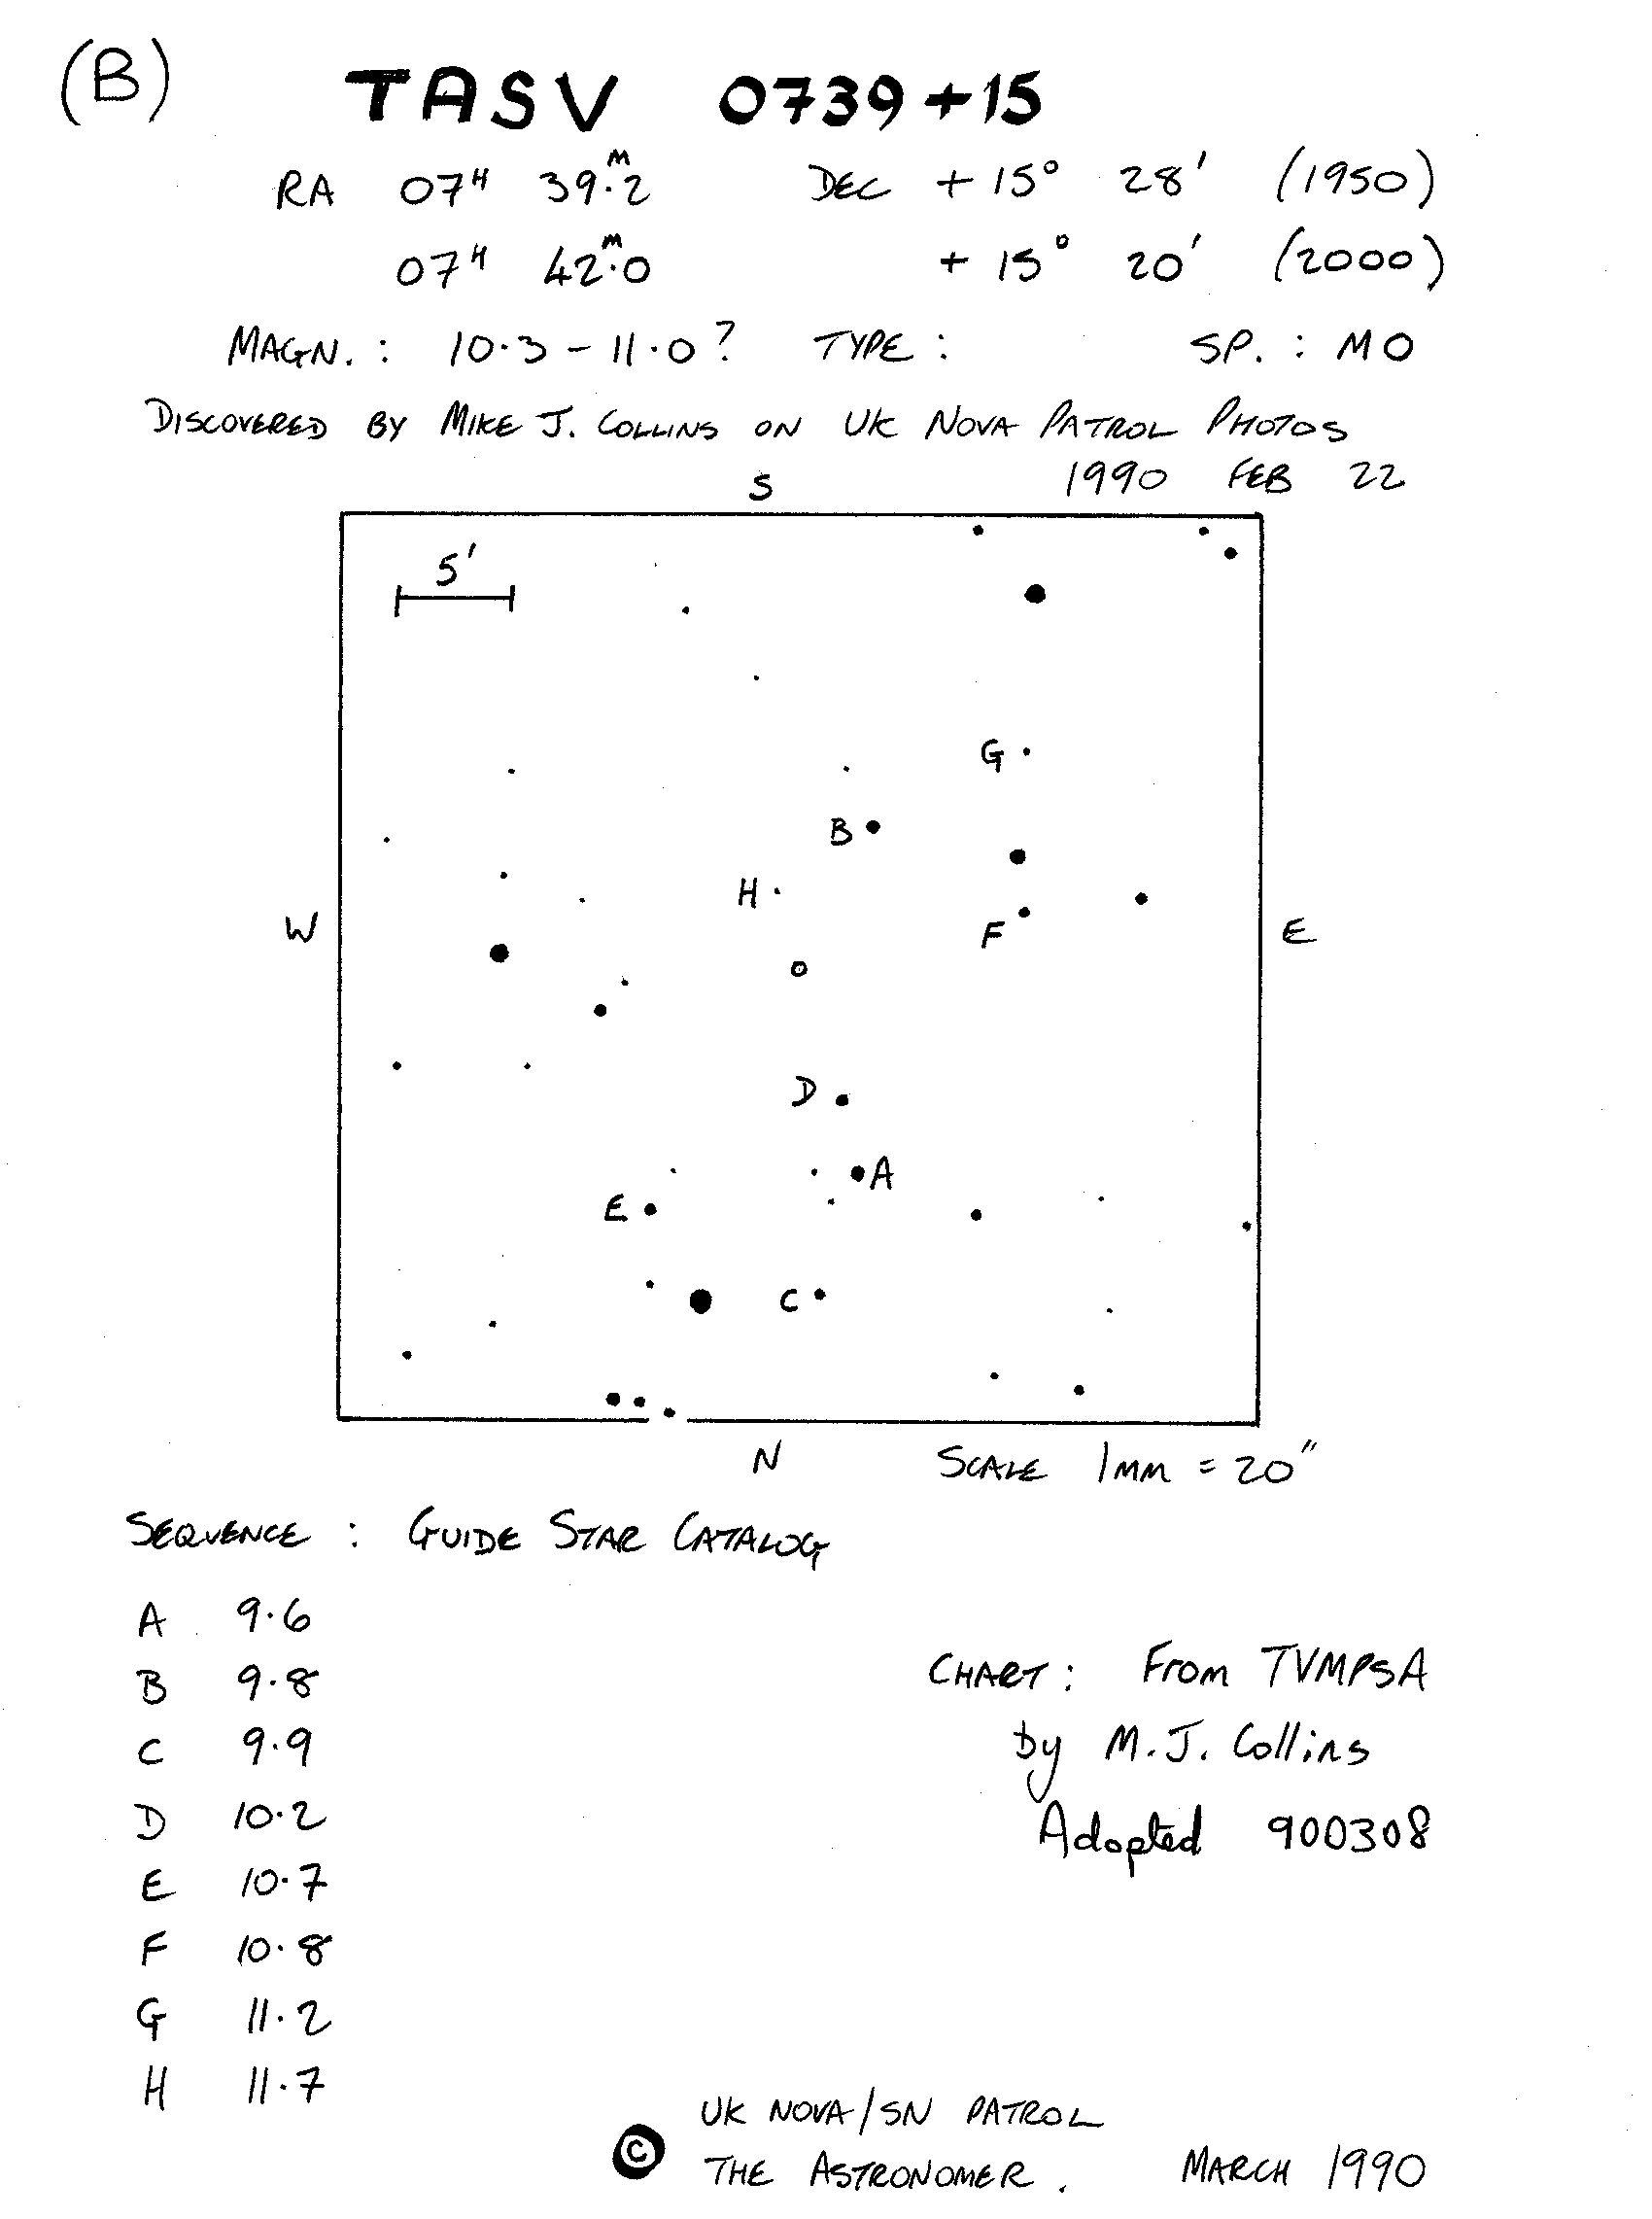 (B) TASV 0739+15
RA 07ᴴ 39ᴹ.2 DEC +15° 28' (1950)
07ᴴ 42ᴹ.0 +15° 20' (2000)
MAGN.: 10.3-11.0? TYPE: SP.: M0
DISCOVERED BY MIKE J. COLLINS ON UK NOVA PATROL PHOTOS
1990 FEB 22
S
5'
G
B
H
W
F
E
D
A
E
C
N
SCALE 1MM = 20"
SEQUENCE: GUIDE STAR CATALOG
A 9.6
B 9.8
C 9.9
D 10.2
E 10.7
F 10.8
G 11.2
H 11.7
CHART: From TVMPSA
by M.J. Collins
Adopted 900308
© UK NOVA/SN PATROL
THE ASTRONOMER. MARCH 1990